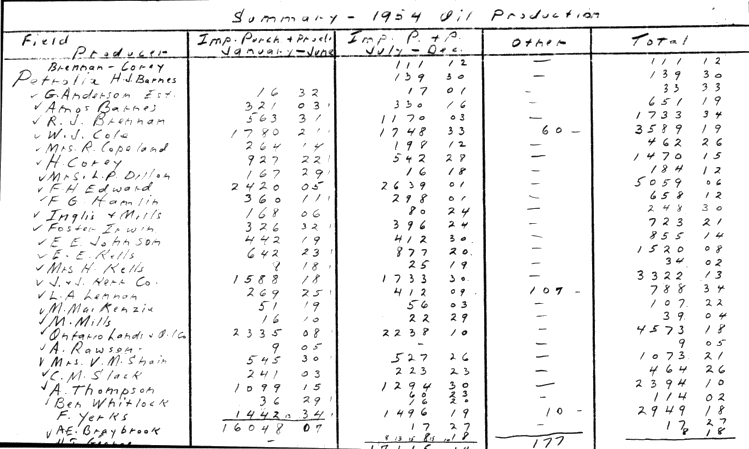 Summary - 1954 Oil Production
Field Producer Imp. Purch + Prod. January - June Imp. P. + P. July - Dec. Other Total
Brennan - Corey 111 12 — 111 12
Petrolia H.J. Barnes 139 30 — 139 30
✓ G. Anderson Est. 16 32 17 01 — 33 33
✓ Amos Barnes 321 03 330 16 — 651 19
✓ R. J. Brennan 563 31 1170 03 — 1733 34
✓ W. J. Cole 1780 21 1748 33 60 - 3589 19
✓ Mrs. R. Copeland 264 14 198 12 — 462 26
✓ H. Corey 927 22 542 28 — 1470 15
✓ Mrs. L. P. Dillon 167 29 16 18 — 184 12
✓ F H Edward 2420 05 2639 01 — 5059 06
✓ F G Hamlin 360 11 298 01 — 658 12
✓ Inglis + Mills 168 06 80 24 — 248 30
✓ Foster Irwin 326 32 396 24 — 723 21
✓ E E Johnson 442 19 412 30 — 855 14
✓ E. E. Kells 642 23 877 20 — 1520 08
✓ Mrs H. Kells 8 18 25 19 — 34 02
✓ J. + J. Kerr Co. 1588 18 1733 30 — 3322 13
✓ L. A Lennon 269 25 412 09 107 - 788 34
✓ M. MacKenzie 51 19 56 03 — 107 22
✓ M. Mills 16 10 22 29 — 39 04
✓ Ontario Lands + Oil Co 2335 08 2238 10 — 4573 18
✓ A. Rawson 9 05 - — 9 05
✓ Mrs. V. M. Shain 545 30 527 26 — 1073 21
✓ C. M. Slack 241 03 223 23 — 464 26
✓ A. Thompson 1099 15 1294 30 — 2394 10
✓ Ben Whitlock 36 29 — 114 02
F. Yerks 1442 34 1496 19 10 - 2949 18
✓ A.E. Braybrook 16048 07 17 27 — 17 27
- 18 177 8 18